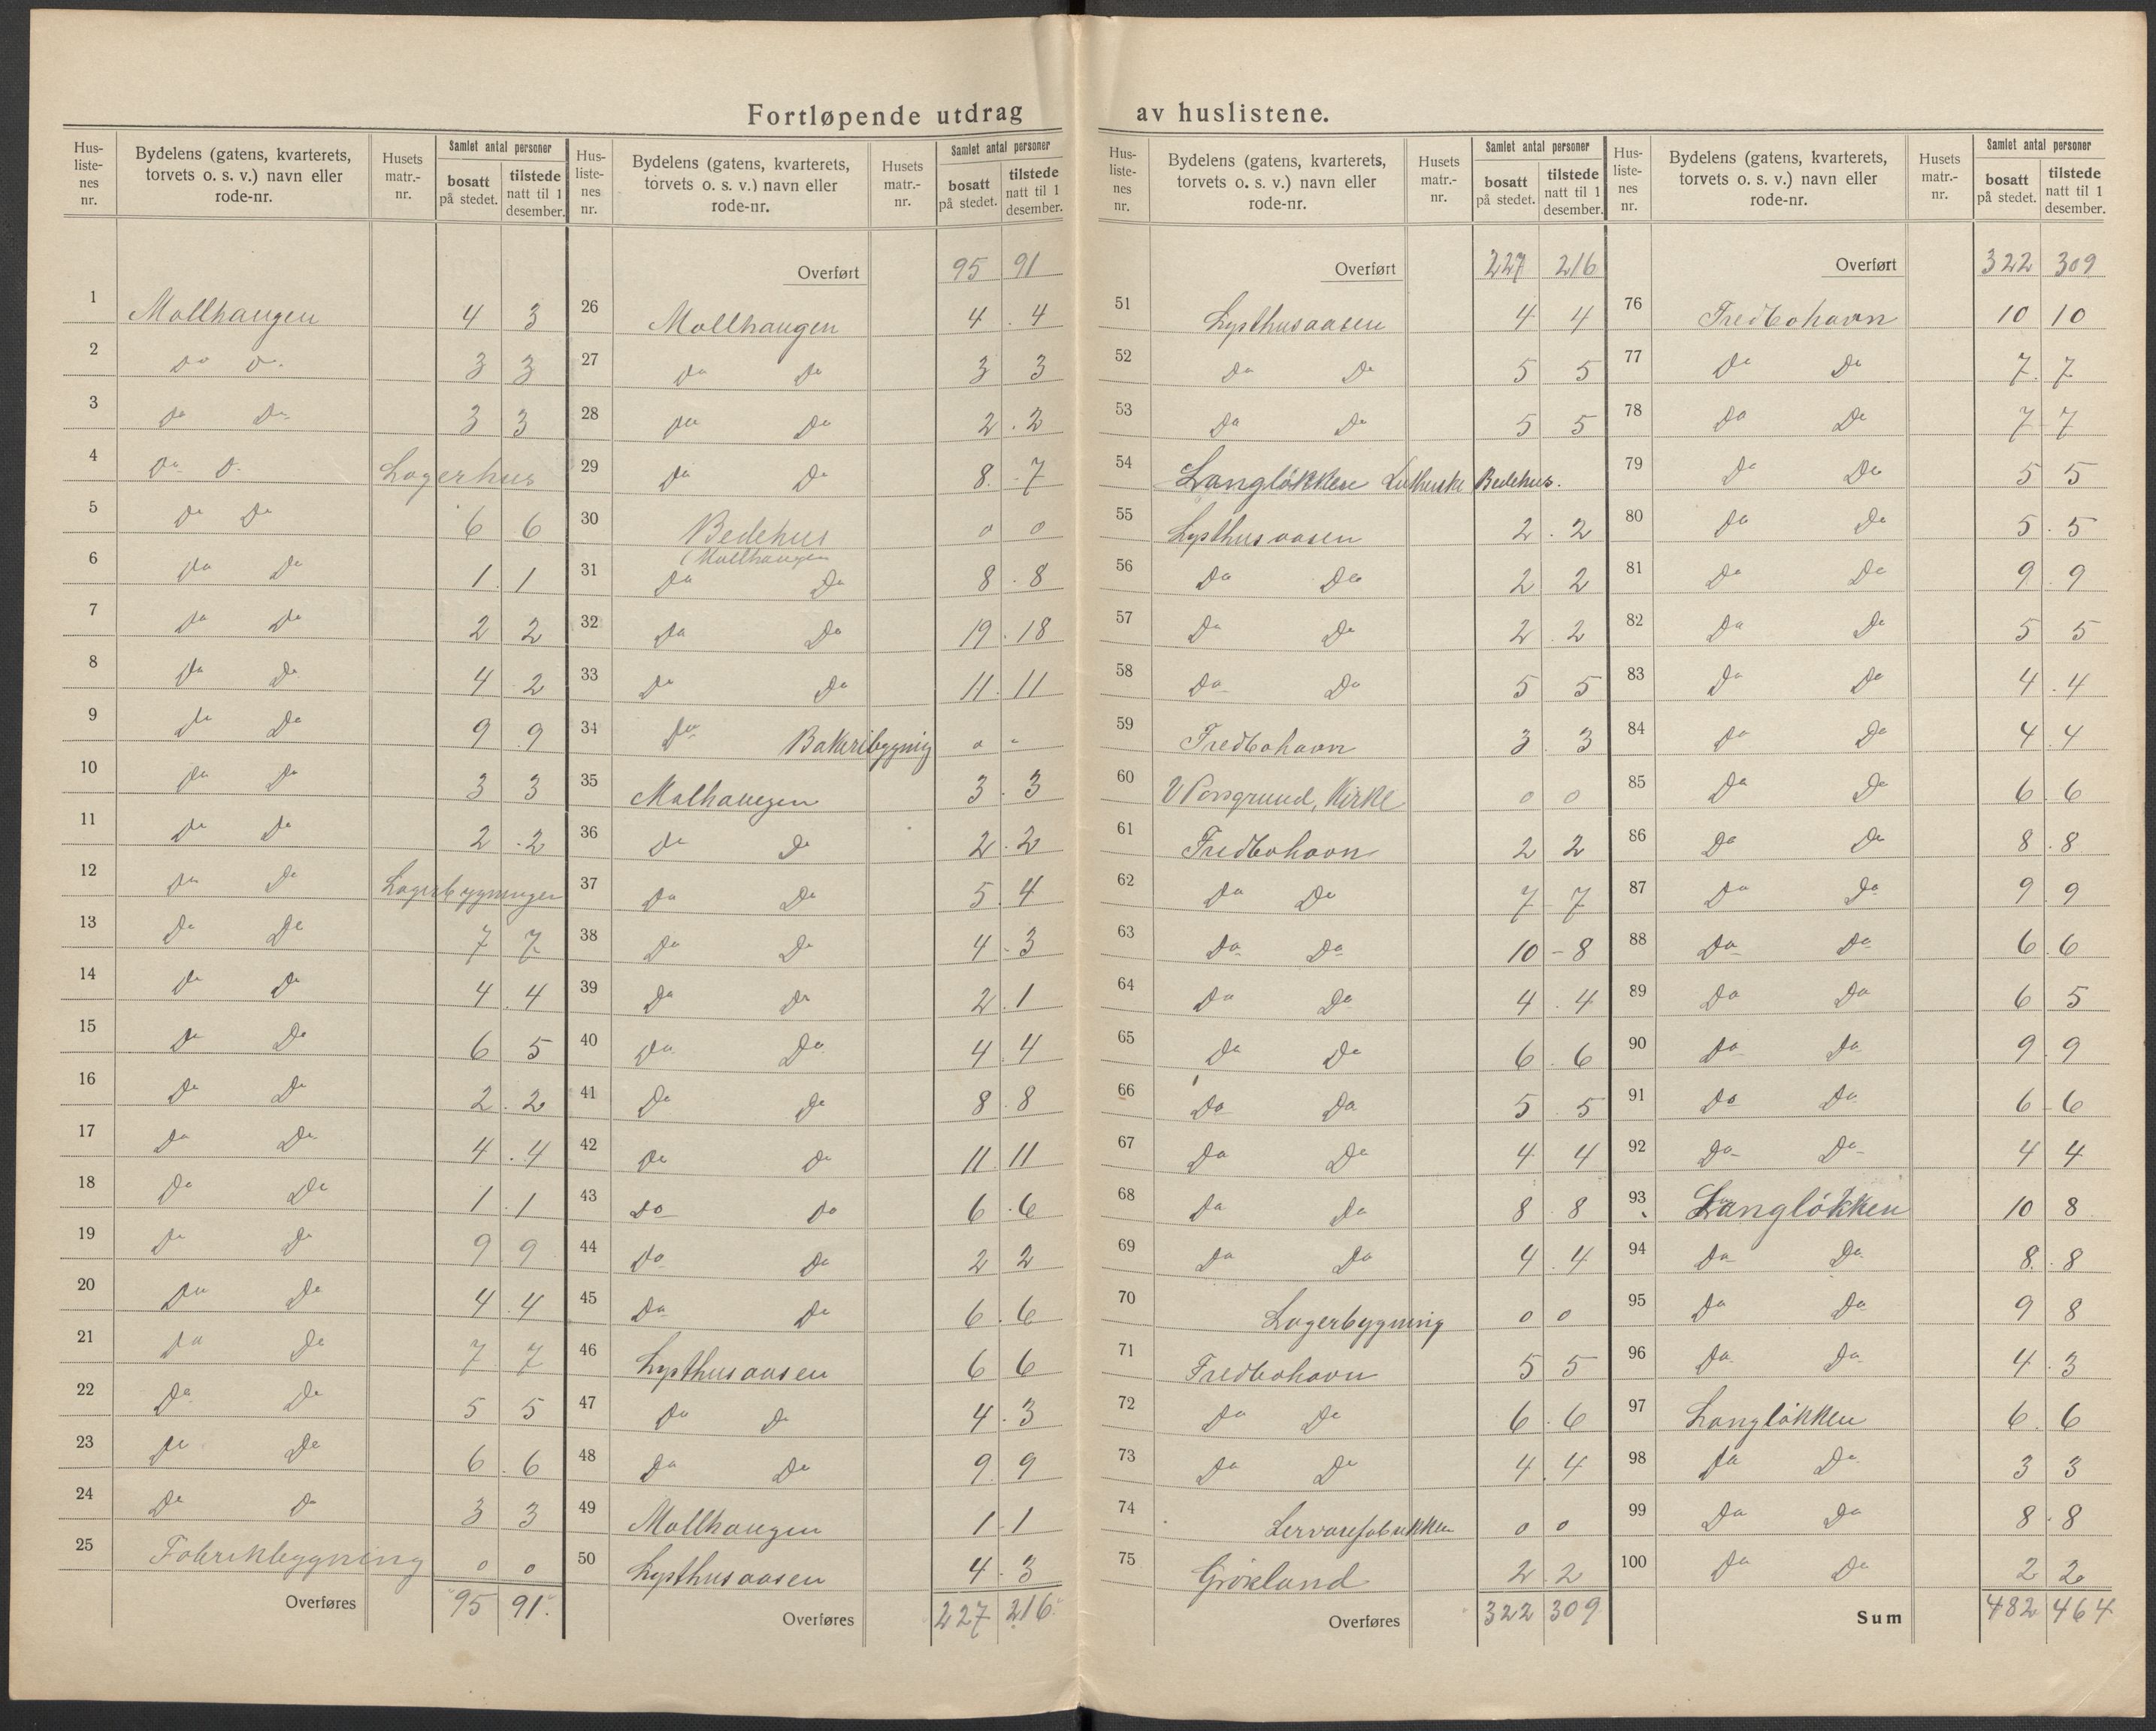 Fortløpende utdrag av huslistene.
Hus-liste-nes nr. | Bydelens (gatens, kvarterets, torvets o. s. v.) navn eller rode-nr. | Husets matr.-nr. | Samlet antal personer | bosatt på stedet. | tilstede natt til 1 desember.
1 Mollhaugen 4 3
2 Do Do 3 3
3 Do Do 3 3
4 Do Do Lagerhus
5 Do Do 6 6
6 Do Do 1 1
7 Do Do 2 2
8 Do Do 4 2
9 Do Do 9 9
10 Do Do 3 3
11 Do Do 2 2
12 Do Do Lagerbygninger
13 Do Do 7 7
14 Do Do 4 4
15 Do Do 6 5
16 Do Do 2 2
17 Do Do 4 4
18 Do Do 1 1
19 Do Do 9 9
20 Do Do 4 4
21 Do Do 7 7
22 Do Do 5 5
23 Do Do 6 6
24 Do Do 3 3
25 Fabrikbygning 0 0
Overføres 95 91
Hus-liste-nes nr. | Bydelens (gatens, kvarterets, torvets o. s. v.) navn eller rode-nr. | Husets matr.-nr. | Samlet antal personer | bosatt på stedet. | tilstede natt til 1 desember.
Overført 95 91
26 Mollhaugen 4 4
27 Do Do 3 3
28 Do Do 2 2
29 Do Do 8 7
30 Bedehus 0 0
(Mollhaugen
31 Do Do 8 8
32 Do Do 19 18
33 Do Do 11 11
34 Do Bakeribygnig 0 0
35 Molhaugen 3 3
36 Do Do 2 2
37 Do Do 5 4
38 Do Do 4 3
39 Do Do 2 1
40 Do Do 4 4
41 Do Do 8 8
42 Do Do 11 11
43 Do Do 6 6
44 Do Do 2 2
45 Do Do 6 6
46 Lysthusaasen 6 6
47 Do Do 4 3
48 Do Do 9 9
49 Mollhaugen 1 1
50 Lysthusaasen 4 3
Overføres 227 216
Hus-liste-nes nr. | Bydelens (gatens, kvarterets, torvets o. s. v.) navn eller rode-nr. | Husets matr.-nr. | Samlet antal personer | bosatt på stedet. | tilstede natt til 1 desember.
Overført 227 216
51 Lysthusaasen 4 4
52 Do Do 5 5
53 Do Do 5 5
54 Langløkken Lutherske Bedehus.
55 Lysthusaasen 2 2
56 Do Do 2 2
57 Do Do 2 2
58 Do Do 5 5
59 Fredbohavn 3 3
60 V Porsgrund, Kirke 0 0
61 Fredbohavn 2 2
62 Do Do 7 7
63 Do Do 10 - 8
64 Do Do 4 4
65 Do Do 6 6
66 Do Do 5 5
67 Do Do 4 4
68 Do Do 8 8
69 Do Do 4 4
70 Lagerbygning 0 0
71 Fredbohavn 5 5
72 Do Do 6 6
73 Do Do 4 4
74 Lervarefabrikken 0 0
75 Grönland 2 2
Overføres 322 309
Hus-liste-nes nr. | Bydelens (gatens, kvarterets, torvets o. s. v.) navn eller rode-nr. | Husets matr.-nr. | Samlet antal personer | bosatt på stedet. | tilstede natt til 1 desember.
Overført 322 309
76 Fredbohavn 10 10
77 Do Do 7 7
78 Do Do 7 7
79 Do Do 5 5
80 Do Do 5 5
81 Do Do 9 9
82 Do Do 5 5
83 Do Do 4 4
84 Do Do 4 4
85 Do Do 6 6
86 Do Do 8 8
87 Do Do 9 9
88 Do Do 6 6
89 Do Do 6 5
90 Do Do 9 9
91 Do Do 6 6
92 Do Do 4 4
93 Langløkken 10 8
94 Do Do 8 8
95 Do Do 9 8
96 Do Do 4 3
97 Langløkken 6 6
98 Do Do 3 3
99 Do Do 8 8
100 Do Do 2 2
Sum 482 464